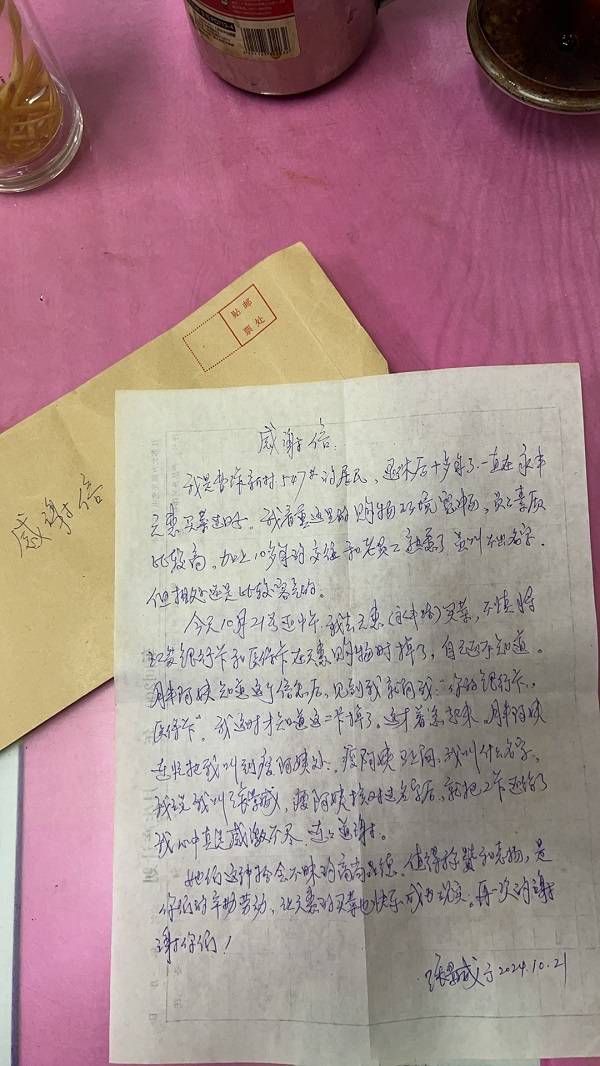 贴邮
票处
感谢信
感谢信.
我是曹杨新村547#的居民,退休后十多年了一直在永丰
元惠买菜过日子。我看重这里的购物环境宽物,员工素质
比较高,加上10多年的交往和老员工熟悉了虽叫不出名字.
但相处还是比较密的。
今天10月21号近中午,我去元惠(永丰路)买菜,不慎将
工资银行卡和医保卡在元惠购物时掉了,自己还不知道。
阿姨知道这个信息后,见到我就问我,"你的银行卡,
医保卡"。我这时才知道这二卡掉了。这才着急起来,阿姨
连忙把我叫到阿姨处,阿姨马上问,我叫什么名字,
我说我叫张,阿姨核对过名字后,就把二卡还给了
我心中真是感激不尽,连连道谢。
她们这种拾金不昧的高尚品德,值得称赞和表扬,是
你们的辛勤劳动,让元惠的买菜也快乐成为现实。再一次的谢
谢你们!
张于2024.10.21